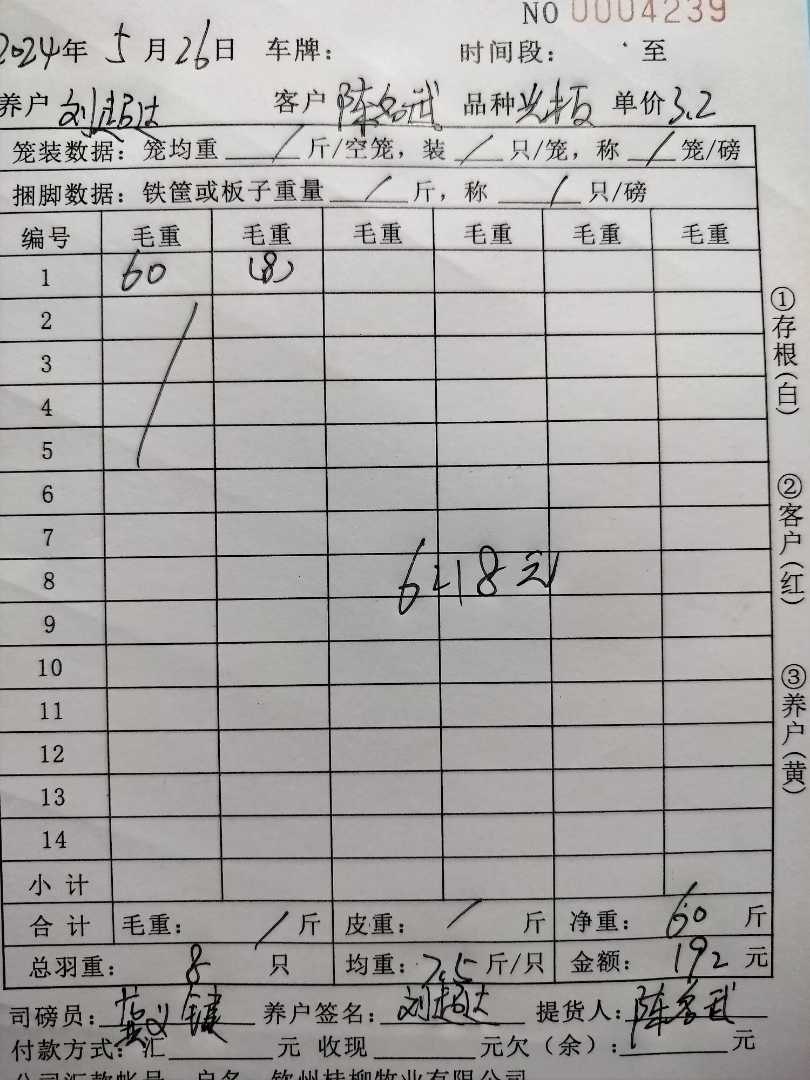 NO 0004239
2024年 5月26日 车牌： 时间段： 至
养户 刘超达 客户 陈名武 品种 光板 单价 3.2
笼装数据：笼均重 / 斤/空笼，装 / 只/笼，称 / 笼/磅
捆脚数据：铁筐或板子重量 / 斤，称 / 只/磅
编号 毛重 毛重 毛重 毛重 毛重 毛重
1 60 (8)
2
3
4
5
6
7
8
9
10
11
12
13
14
小计
合计 毛重： / 斤 皮重： / 斤 净重： 60 斤
总羽重： 8 只 均重：7.5 斤/只 金额： 192 元
司磅员： 养户签名：刘超达 提货人：陈名武
付款方式：汇 元 收现 元欠（余）： 元
公司汇款帐号 户名 钦州桂柳牧业有限公司
①存根(白)
②客户(红)
③养户(黄)